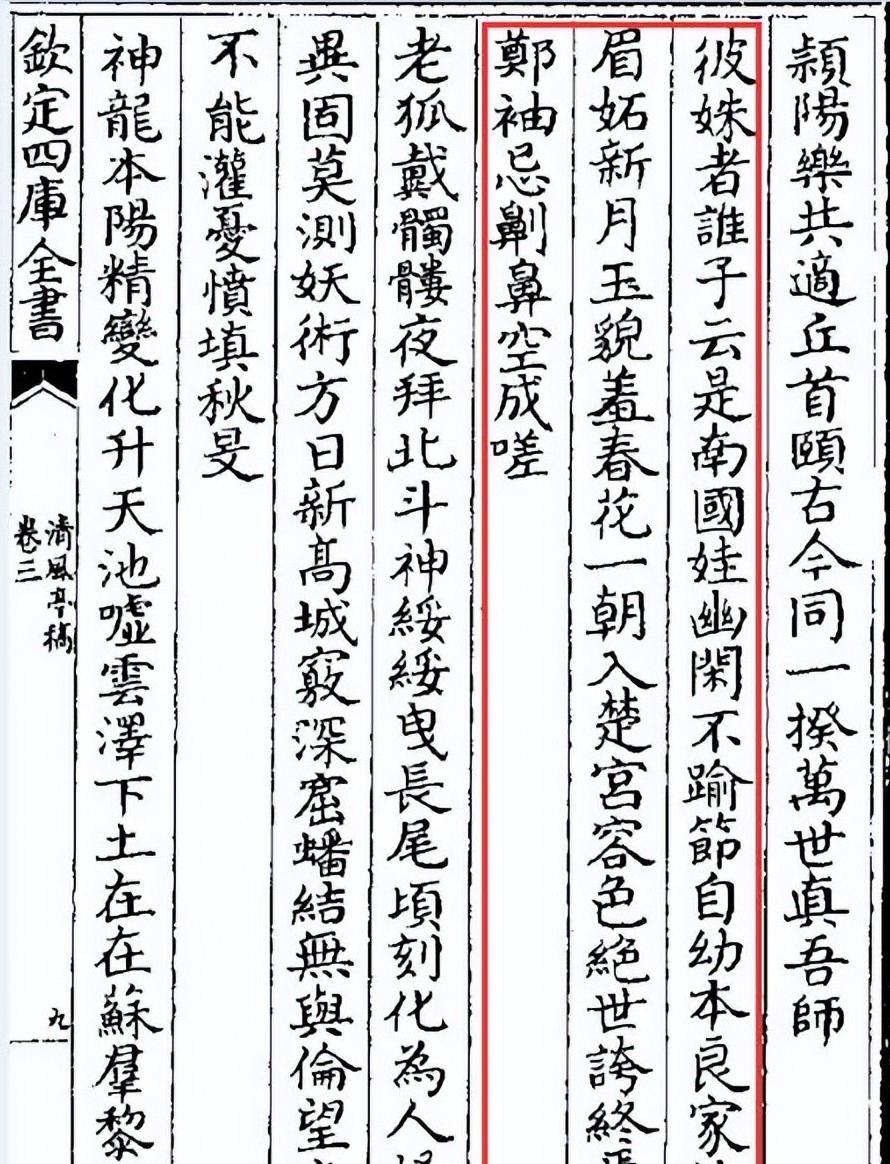 潁陽樂共適丘首頤古今同一揆萬世真吾師
彼姝者誰子云是南國娃幽閑不踰節自幼本良家
眉妬新月玉貌羞春花一朝入楚宮容色絕世誇終
鄭袖忌劓鼻空成嗟
老狐戴髑髏夜拜北斗神綏綏曳長尾頃刻化為人
異固莫測妖術方日新髙城竅深窟蟠結無與倫望
不能灌憂憤填秋旻
神龍本陽精變化升天池嘘雲澤下土在在蘇羣黎
欽定四庫全書
清風亭稿
卷三
九